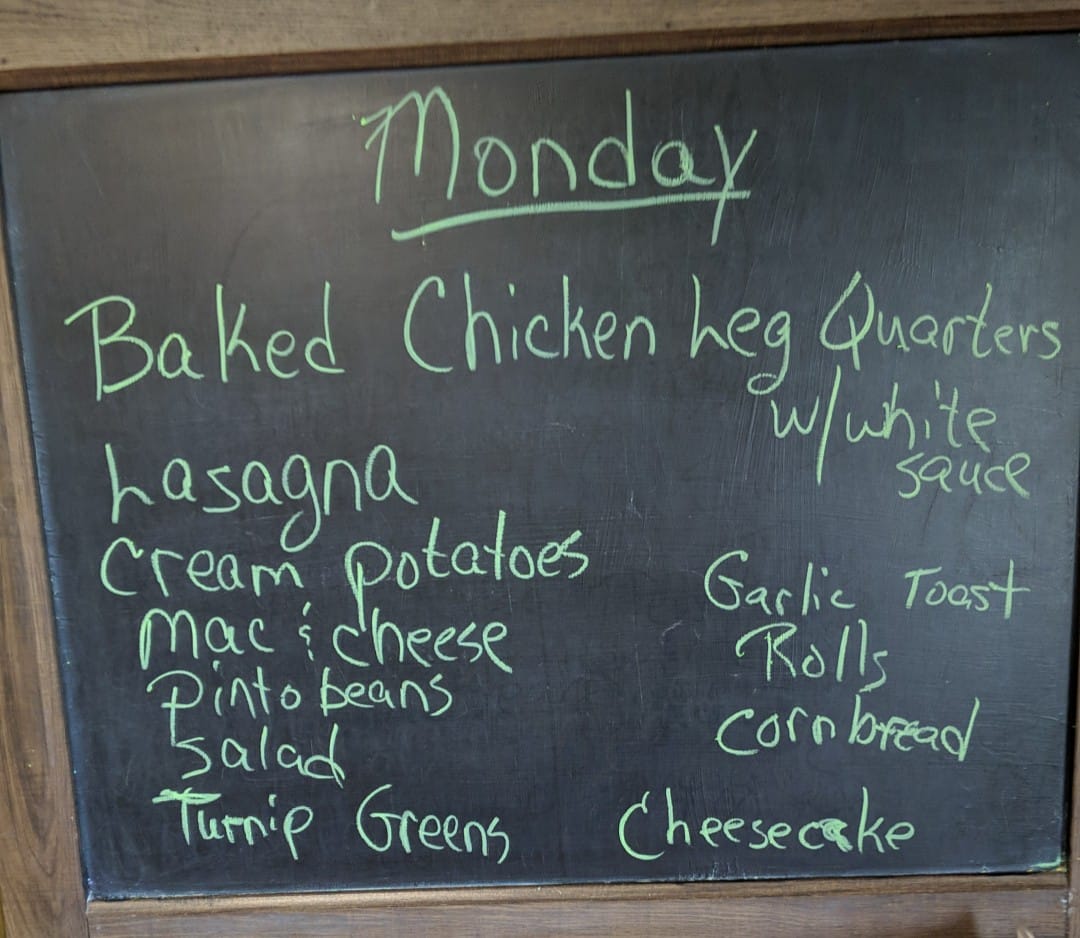 Monday
Baked Chicken Leg Quarters
w/white
sauce
Lasagna
Cream potatoes
Mac & cheese
Pinto beans
Salad
Turnip Greens
Garlic Toast
Rolls
Cornbread
Cheesecake